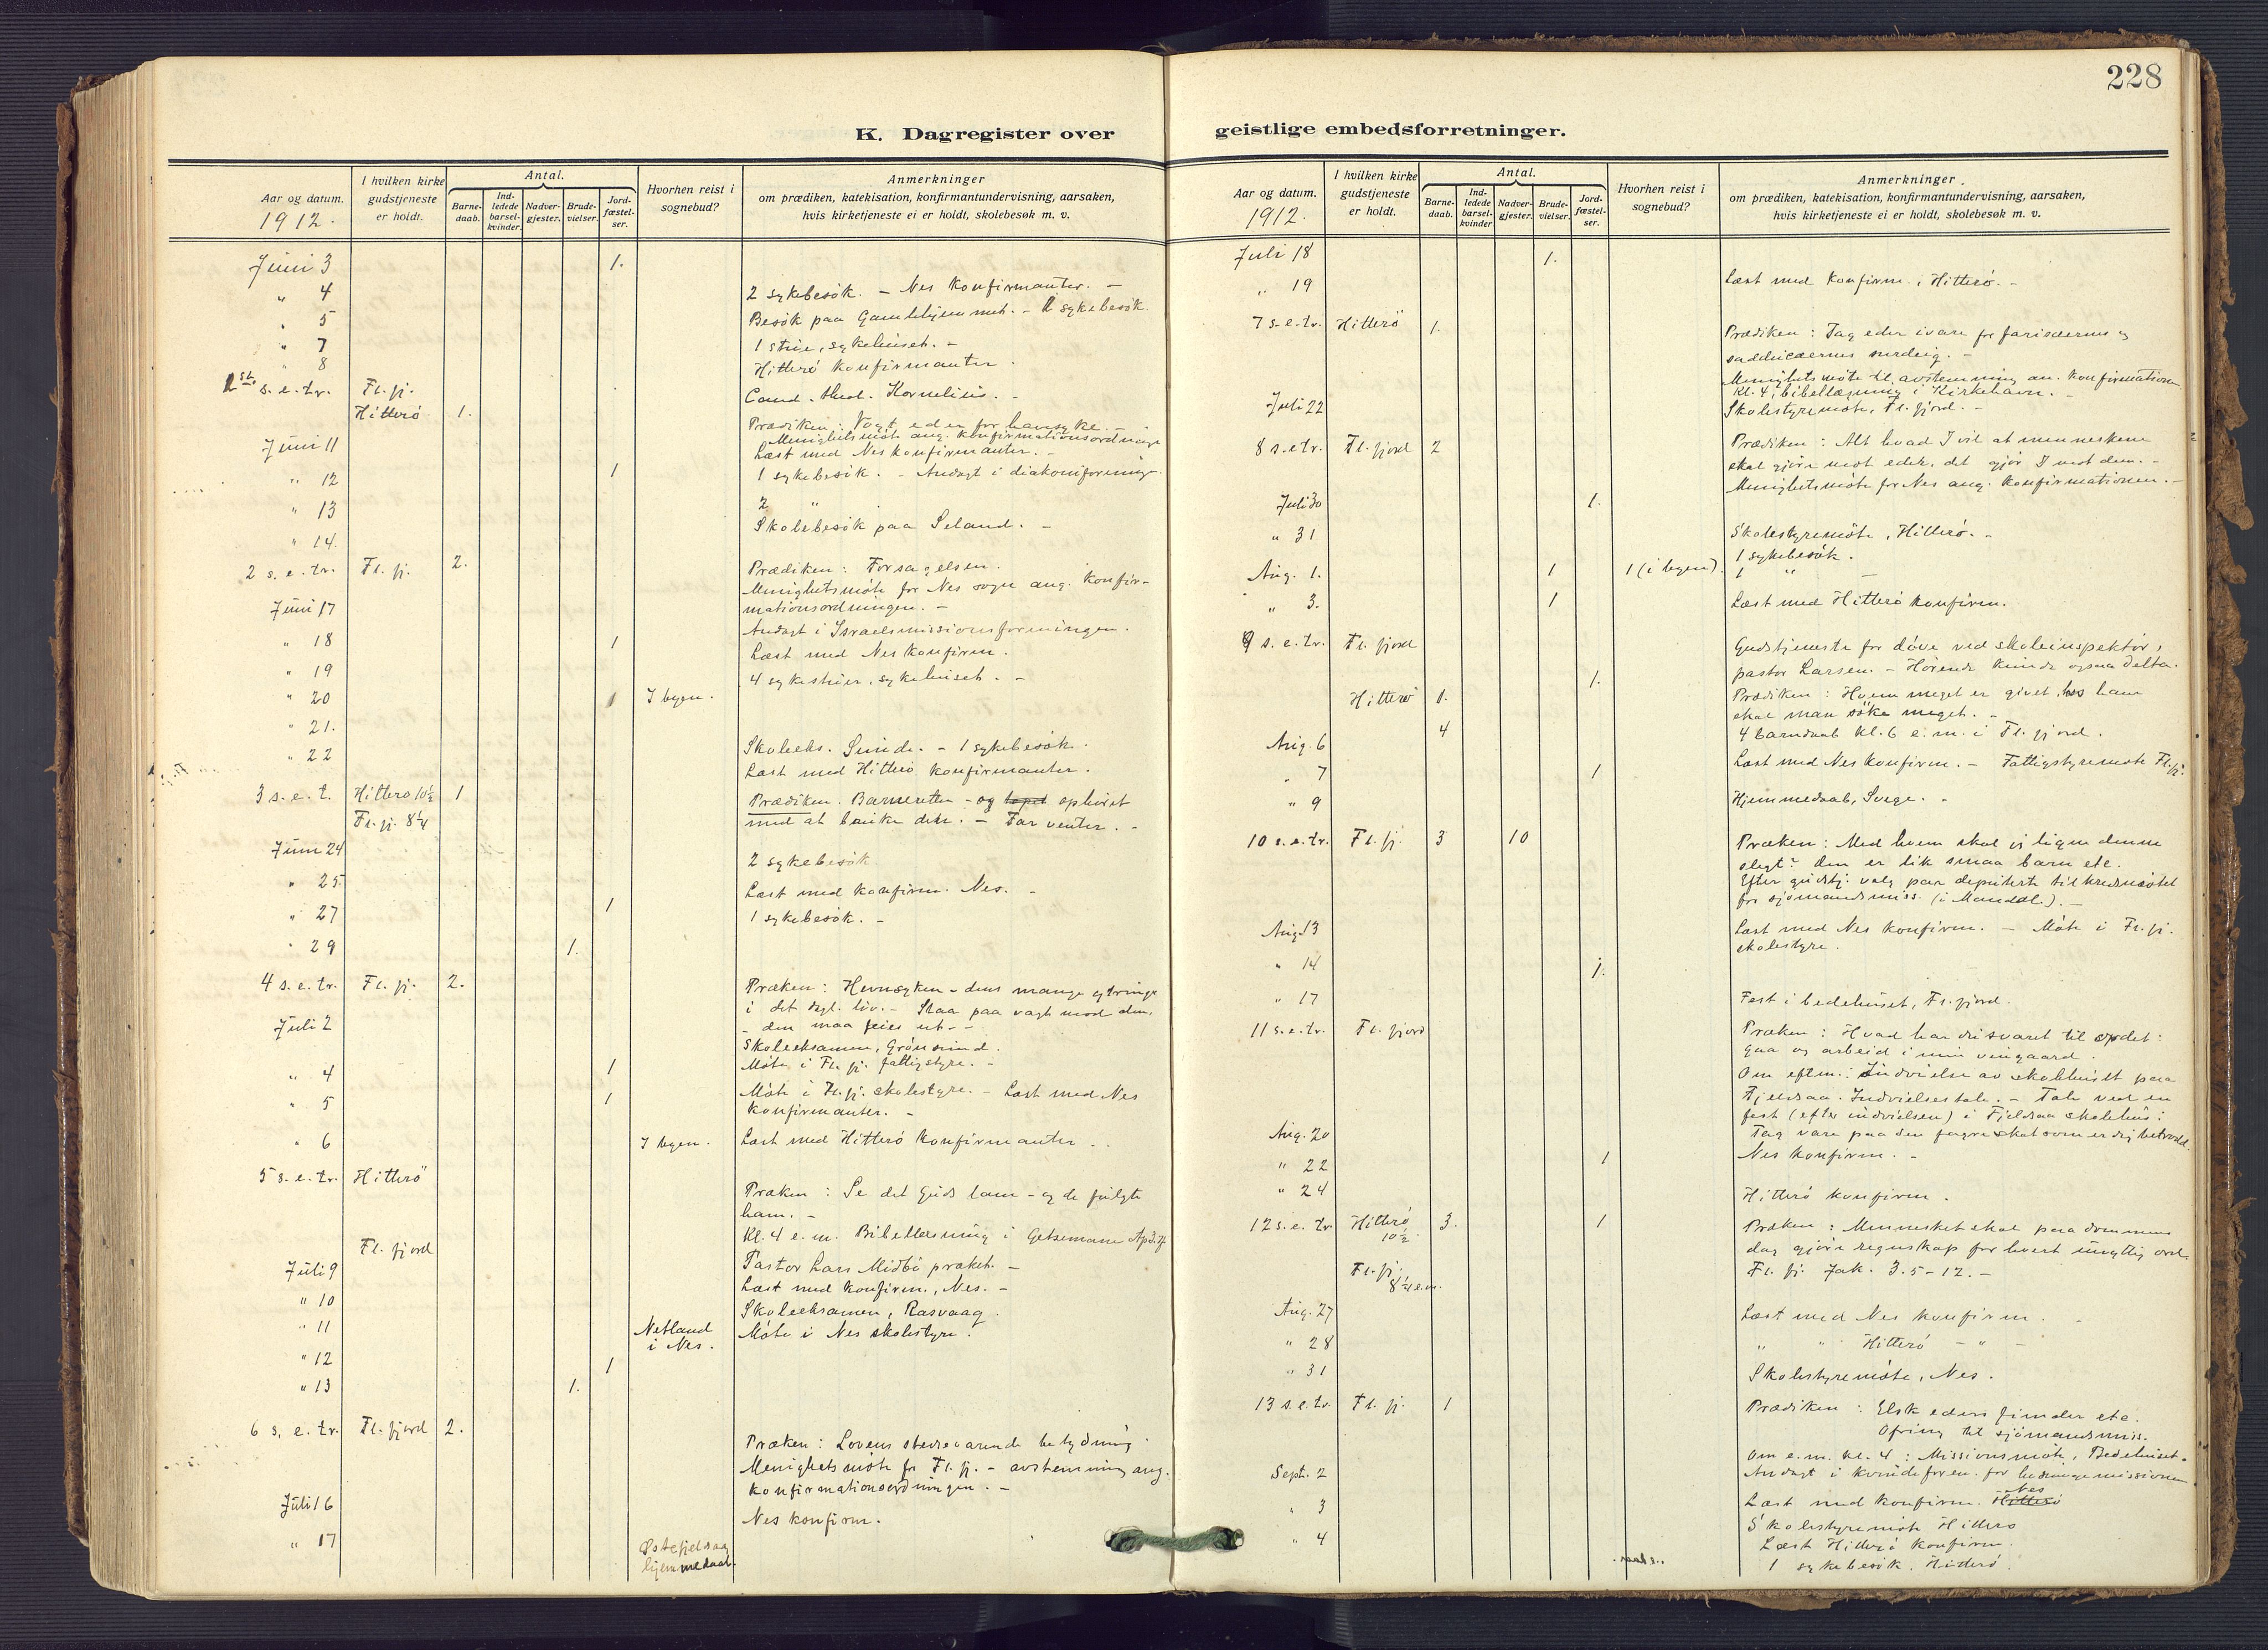 228
K. Dagregister over
geistlige embedsforretninger.
Aar og datum.
1912.
I hvilken kirke gudstjeneste er holdt.
Antal.
Barne-daab.
Ind-ledede barsel-kvinder.
Nadver-gjester.
Brude-vielser.
Jord-fæstel-ser.
Hvorhen reist i sognebud?
Anmerkninger
om prædiken, katekisation, konfirmantundervisning, aarsaken,
hvis kirketjeneste ei er holdt, skolebesøk m. v.
Juni 3 1.
" 4 2 sykebesök. - Nes konfirmanter. -
" 5 Besök paa Gamlehjemmet. - sykebesök.
" 7 1 stue, sykehuset. -
" 8 Hitterö konfirmanter.
1ste s. e. tr. Fl. fj. Cand. theol. Kornelius. -
Hitterö 1. Prædiken: Vogt eder for havesyke. -
Menighetsmöte ang. konfirmationsordninge
Juni 11 Læst med Nes konfirmanter. -
" 12 1 1 sykebesök. - Andagt i diakoniforeninge.
" 13 2 "
" 14. Skolebesök paa Seland. -
2 s. e. tr. Fl. fj. 2. Prædiken: Forsagelsen.
Menighetsmöte for Nes sogn ang. konfir-
mationsordningen. -
Juni 17 Andagt i Israelsmissionsforeningen.
" 18 1 Læst med Nes konfirm.
" 19 4 sykestuer, sykehuset. -
" 20 1 I byen.
" 21.
" 22 Skoleeks. Sunde. - 1 sykebesök.
Læst med Hitterö konfirmanter.
3 s. e. t. Hitterö 10½ 1 Prædiken. Barneretten - og ophöret
Fl. fj. 8¼ med at bruke den. - Far venter. -
Juni 24 2 sykebesök
" 25. Læst med konfirm. Nes. -
" 27 1 1 sykebesök. -
" 29 1.
4 s. e. tr. Fl. fj. 2. Præken: Hevnsyken - dens mange ytringe
i det dagl. liv. - Staa paa vagt mod den,
- den maa feies ut. -
Juli 2 Skoleeksamen, Grönsund.
Möte i Fl. fj. fattigstyre. -
" 4 1
" 5 1 Möte i Fl. fj. skolestyre. - Læst med Nes
konfirmanter. -
" 6 I byen. Læst med Hitterö konfirmanter -
5 s. e. tr. Hitterö Præken: Se det Guds lam - og de fulgte
ham. -
Kl. 4 e. m. Bibellæsning i Getsemane
Fl. fjord Pastor Lars Midbö præket. -
Juli 9 Læst med konfirm., Nes. -
" 10 Skoleeksamen, Rasvaag.
" 11 Netland i Nes. Möte i Nes skolestyre.
" 12 1
" 13 1.
6 s. e. tr. Fl. fjord 2. Præken: Lovens stedsevarende betydning.
Menighetsmöte for Fl. fj. - avstemning ang.
konfirmationsordningen. -
Juli 16 Nes konfirm.
" 17 hjemmedaab.
Aar og datum.
1912.
I hvilken kirke gudstjeneste er holdt.
Antal.
Barne-daab.
Ind-ledede barsel-kvinder
Nadver-gjester.
Brude-vielser.
Jord-fæstel-ser.
Hvorhen reist i sognebud?
Anmerkninger
om prædiken, katekisation, konfirmantundervisning, aarsaken,
hvis kirketjeneste ei er holdt, skolebesøk m. v.
Juli 18 1.
" 19 Læst med konfirm. i Hitterö. -
7 s. e. tr. Hitterö 1. Prædiken: Tag eder ivare for farisæernes og
sadducæernes surdeig. -
Menighetsmöte til avstemning an. konfirmationen
Kl. 4, bibellæsning i Kirkehavn. -
Juli 22 Skolestyremöte, Fl. fjord. -
8 s. e. tr. Fl. fjord 2 Prædiken: Alt hvad I vil at menneskene
skal gjöre mot eder, det gjör I mot dem. -
Menighetsmöte for Nes ang. konfirmationen. -
Juli 30 1.
" 31 Skolestyremöte, Hitterö. -
1 sykebesök.
Aug. 1. 1 1 (i byen). 1 " -
" 3. 1 Læst med Hitterö konfirm.
9 s. e. tr. Fl. fjord Gudstjeneste for döve ved skoleinspektör,
pastor Larsen. - Hörende kunde ogsaa delta.
1.
Hitterö 1. Prædiken: Hvem meget er givet, hos ham
skal man söke meget. -
4 4 barnedaab kl. 6 e. m. i Fl. fjord.
Aug. 6 Læst med Nes konfirm. - Fattigstyremöte Fl. fj.
" 7 1
" 9 Hjemmedaab, Svege. -
10 s. e. tr. Fl. fj. 3 10 Præken: Med hvem skal jeg ligne denne
slegt? den er lik smaa barn etc.
Efter gudstj. valg paa deputerte til kredsmötet
for sjömandsmiss. (i Mandal.). -
Aug. 13 Læst med Nes konfirm. - Möte i Fl. fj.
skolestyre.
" 14 1.
" 17 Fest i bedehuset, Fl. fjord.
11 s. e. tr. Fl. fjord Præken: Hvad har du svaret til ordet:
Gaa og arbeid i min vingaard.
Om eftm.: Indvielse av skolehuset paa
Fjeldsaa. Indvielsestale. - Tale ved en
fest (efter indvielsen) i Fjeldsaa skolehus:
Tag vare paa den fagre skat som er dig betrodd.
Aug. 20 Nes konfirm. -
" 22 1
" 24 Hitterö konfirm.
12 s. e. tr Hitterö 10½ 3. 1 Præken: Mennesket skal paa dommens
dag gjöre regnskap for hvert unyttig ord.
Fl. fj. 8¼ e.m. Fl. fj. Jak. 3. 5-12. -
Aug. 27 Læst med Nes konfirm. -
" 28 " " Hitterö - " -
" 31 Skolestyremöte, Nes.
13 s. e. tr. Fl. fj. 1 Prædiken: Elsk eders fiender etc.
Ofring til sjömandsmiss.
Om e. m. kl. 4: Missionsmöte, Bedehuset.
Sept. 2 Andagt i kvindeforen. for hedningemissionen
" 3 Læst med konfirm. Hitterö Nes
Skolestyremöte Hitterö
" 4 Læst Hitterö konfirm.
1 sykebesök. Hitterö.